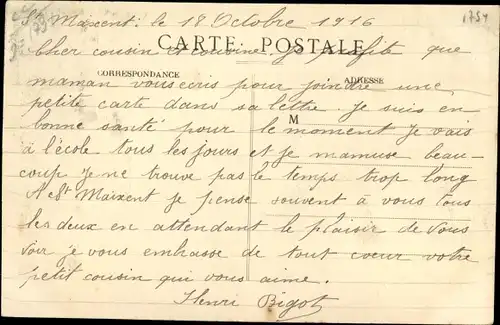 St Maixent le 18 Octobre 1916
1754
Cher cousin et cousine. Je profite que
CARTE POSTALE
maman vous ecris pour joindre une
CORRESPONDANCE
ADRESSE
petite carte dans sa lettre. Je suis en
M
bonne santé pour le moment je vais
à l'école tous les jours et je mamuse beau-
coup je ne trouve pas le temps trop long
A St Maixent je pense souvent à vous tous
les deux en attendant le plaisir de vous
voir je vous embrasse de tout coeur votre
petit cousin qui vous aime.
Henri Bigot